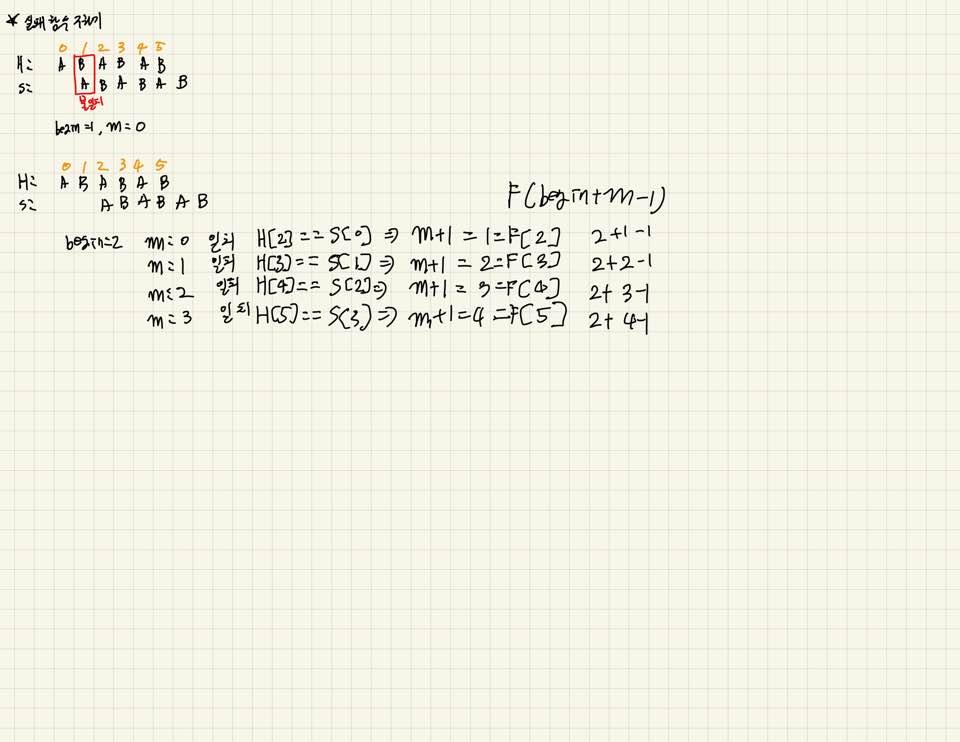 * 실패 함수 구하기
0 1 2 3 4 5
H: A B A B A B
S: A B A B A B
불일치
begin=1, m=0
0 1 2 3 4 5
H: A B A B A B
S: A B A B A B
F(begin+m-1)
begin=2 m=0 일치 H[2]==S[0] ⇒ m+1=1=F[2] 2+1-1
m=1 일치 H[3]==S[1] ⇒ m+1=2=F[3] 2+2-1
m=2 일치 H[4]==S[2] ⇒ m+1=3=F[4] 2+3-1
m=3 일치 H[5]==S[3] ⇒ m+1=4=F[5] 2+4-1